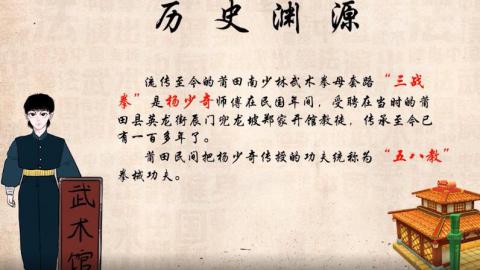 历史渊源
流传至今的莆田南少林武术拳母套路“三战
拳”是杨少奇师傅在民国年间，受聘在当时的莆
田县英龙街辰门兜龙坡郑家开馆教徒，传承至今已
有一百多年了。
莆田民间把杨少奇传授的功夫统称为“五八教”
拳械功夫。
武术馆